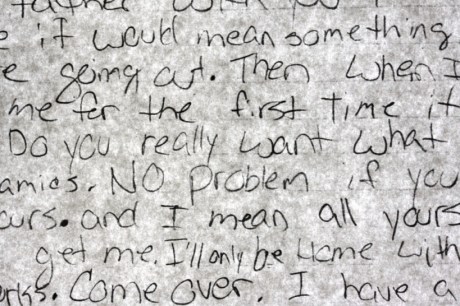 father with you I
e it would mean something
e going out. Then when I
me for the first time it
Do you really want what
amics. NO problem if you
ours. and I mean all yours
get me. I'll only be home with
orks. Come over. I have a